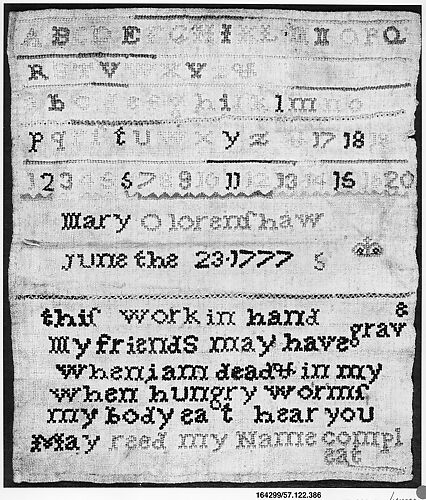 A B C D E F G H I K L M N O P Q
R S T V W X Y Z
a b c d e f g h i k l m n o
p q r s t u x y z 17 18
1 2 3 4 5 6 7 8 9 10 11 12 13 14 15 20
Mary Olorenſhaw
June the 23·1777 S
thiſ work in hand
My friends may have
grav
e
when i am dead & in my
when hungry wormſ
my body eat hear you
May reed my Name compl
eat
164299/57.122.386